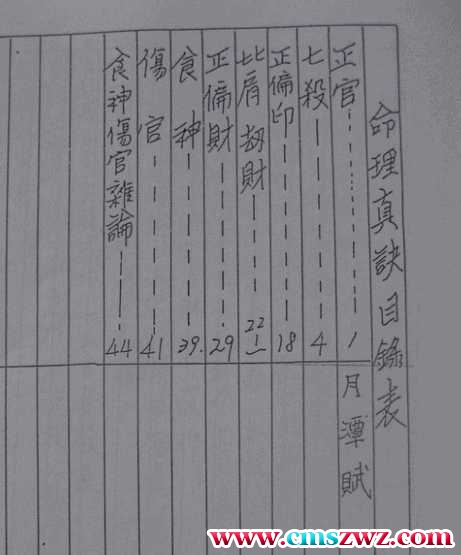 命理真訣目錄表
正官----------1
七殺----------4
正偏印----------18
比肩劫財----------22
正偏財----------29
食神----------39.
傷官----------41
食神傷官雜論----------44
月潭賦
www.cmszwz.com